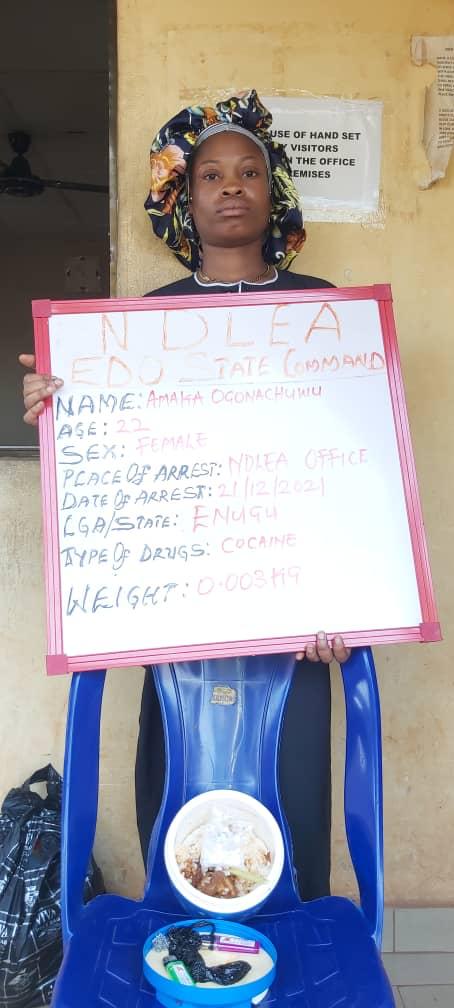 USE OF HAND SET
VISITORS
THE OFFICE
EMISES
NDLEA
EDO STATE COMMAND
NAME: AMAKA OGONACHUWU
AGE: 22
SEX: FEMALE
PLACE OF ARREST: NDLEA OFFICE
DATE OF ARREST: 21/12/2021
LGA/STATE: ENUGU
TYPE OF DRUGS: COCAINE
WEIGHT: 0.003KG